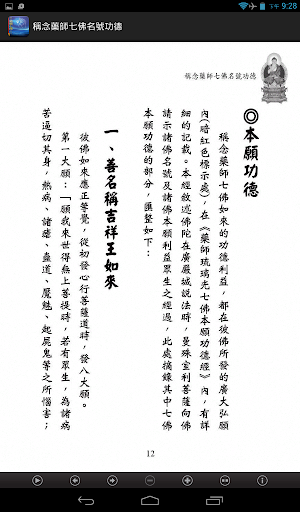 下午 9:28
稱念藥師七佛名號功德
稱念藥師七佛名號功德
◎本願功德
稱念藥師七佛如來的功德利益，都在彼佛所發的廣大弘願
內(暗紅色標示處)，在《藥師琉璃光七佛本願功德經》內，有詳
細的記載。本經敘述佛陀在廣嚴城說法時，曼殊室利菩薩向佛
請示諸佛名號及諸佛本願利益眾生之經過，此處摘錄其中七佛
本願功德的部分，匯整如下：
一、善名稱吉祥王如來
彼佛如來應正等覺，從初發心行菩薩道時，發八大願。
第一大願：「願我來世得無上菩提時，若有眾生，為諸病
苦逼切其身，熱病、諸瘧、蠱道、魘魅、起屍鬼等之所惱害；
12